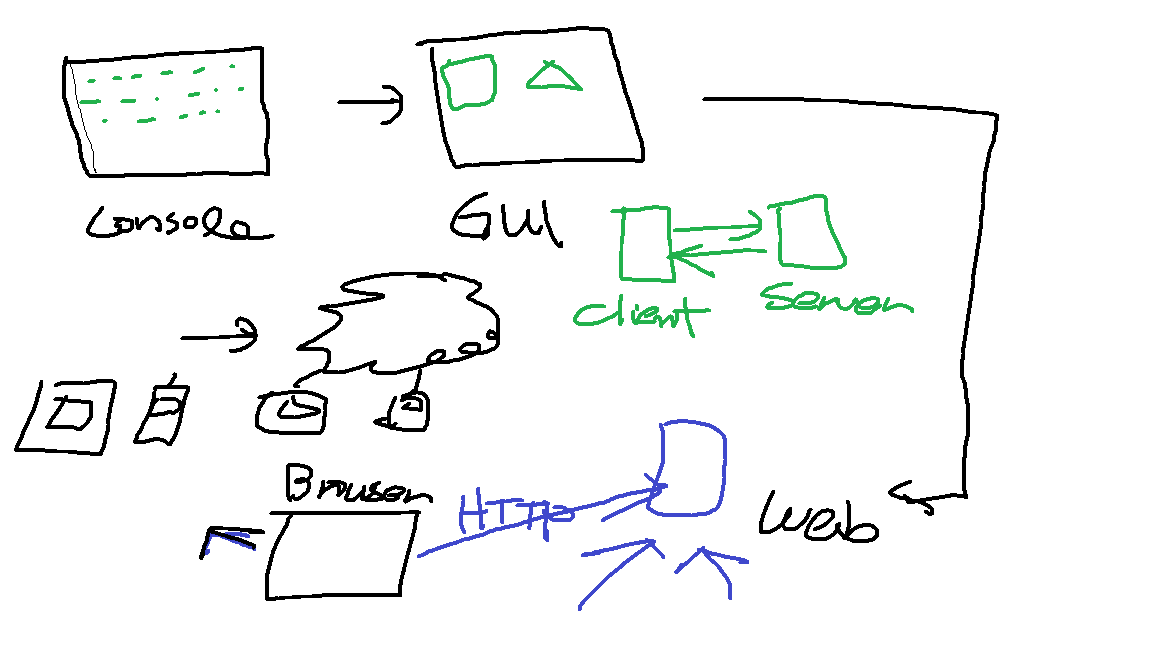 Console
GUI
Client
Server
Browser
HTTP
Web